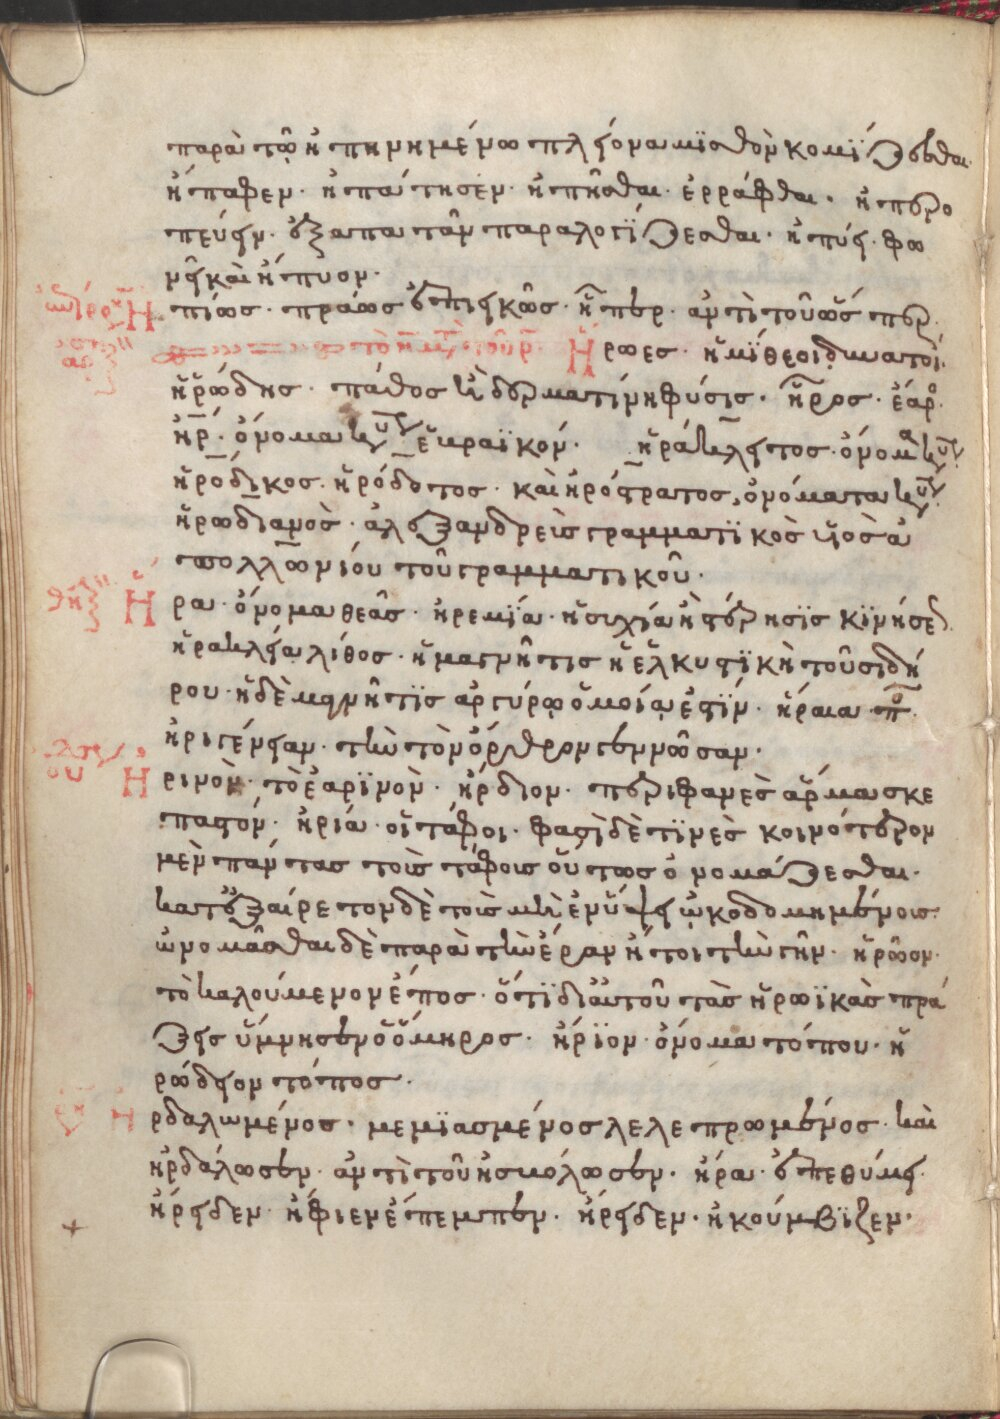 παρὰ τῷ ἠπημημένω πλείονα μϊσθὸν κομίζεσθαι.
ἤπαφεν· ἠπάτησεν· ἠπῆσθαι· ἐρράφθαι· ἠπερο
πεύειν· ἐξαπατᾶν παραλογΐζεσθαι· ἠπύει· φω
νεῖ καὶ ἤπυον·
Ἠπίως· πράως ἐπιεικῶς· ἤπερ· ἀντὶ τοῦ ὥσπερ·
τὸ η μετὰ τοῦ ρ· Ἥρωες· ἡμίθεοι δυνατοί·
ἡρώδης· πάθος ἐν δέρματι ἢ φύσις· ἦρος· ἔαρος·
ἠρ· ὄνομα κύριον ἑβραϊκόν· ἡράκλειτος· ὄνομα κύριον·
ἡρόδικος· ἡρόδοτος· καὶ ἡρόστρατος, ὀνόματα κύρια·
ἡρωδιανὸς· ἀλεξανδρεὺς γραμματϊκὸς υἱὸς ἀ
πολλωνίου τοῦ γραμματικοῦ·
Ἥρα· ὄνομα θεᾶς· ἠρεμΐα· ἡσυχία ἢ στέρησϊς κϊνήσεως·
ἡρακλεία λίθος· ἡ μαγνῆτις ἡ ἑλκυστϊκὴ τοῦ σιδή
ρου· ἡ δὲ μαγνῆτϊς ἀργύρῳ ὁμοία ἐστΐν· ἤραια
ἠριγένειαν· τὴν τὸν ὄρθρον γεννῶσαν·
Ἠρινὸν· τὸ ἐαρϊνὸν· ἤρδιον· περιφανὲς ἅρμα σκε
παστόν· ἠρία· οἱ τάφοι· φασὶ δὲ τϊνὲς κοινότερον
μὲν πάντας τοὺς τάφους οὕτως ὀνομάζεσθαι·
κατ' ἐξαίρετον δὲ τοὺς μὴ ἐν ὕψει ᾠκοδομημένους·
ὠνομᾶσθαι δὲ παρὰ τὴν ἔραν ἤτοι τὴν γῆν· ἡρῶον·
τὸ καλούμενον ἔπος· ὅτϊ δι' αὐτοῦ τὰς ἡρωϊκὰς πρά
ξεις ὕμνησεν ὁ ὅμηρος· ἠρΐον· ὄνομα τόπου· ἡ
ρώδειον τόπος·
Ἠρδαλωμένος· μεμϊασμένος λελεπρωμένος· καὶ
ἠρδάλωσεν· ἀντὶ τοῦ ἠσκόλωσεν· ἤρα· ἐπεθύμει·
ἤρειδεν· ἠφιεν ἔπεμπεν· ἤρειδεν· ἠκούμβϊζεν·